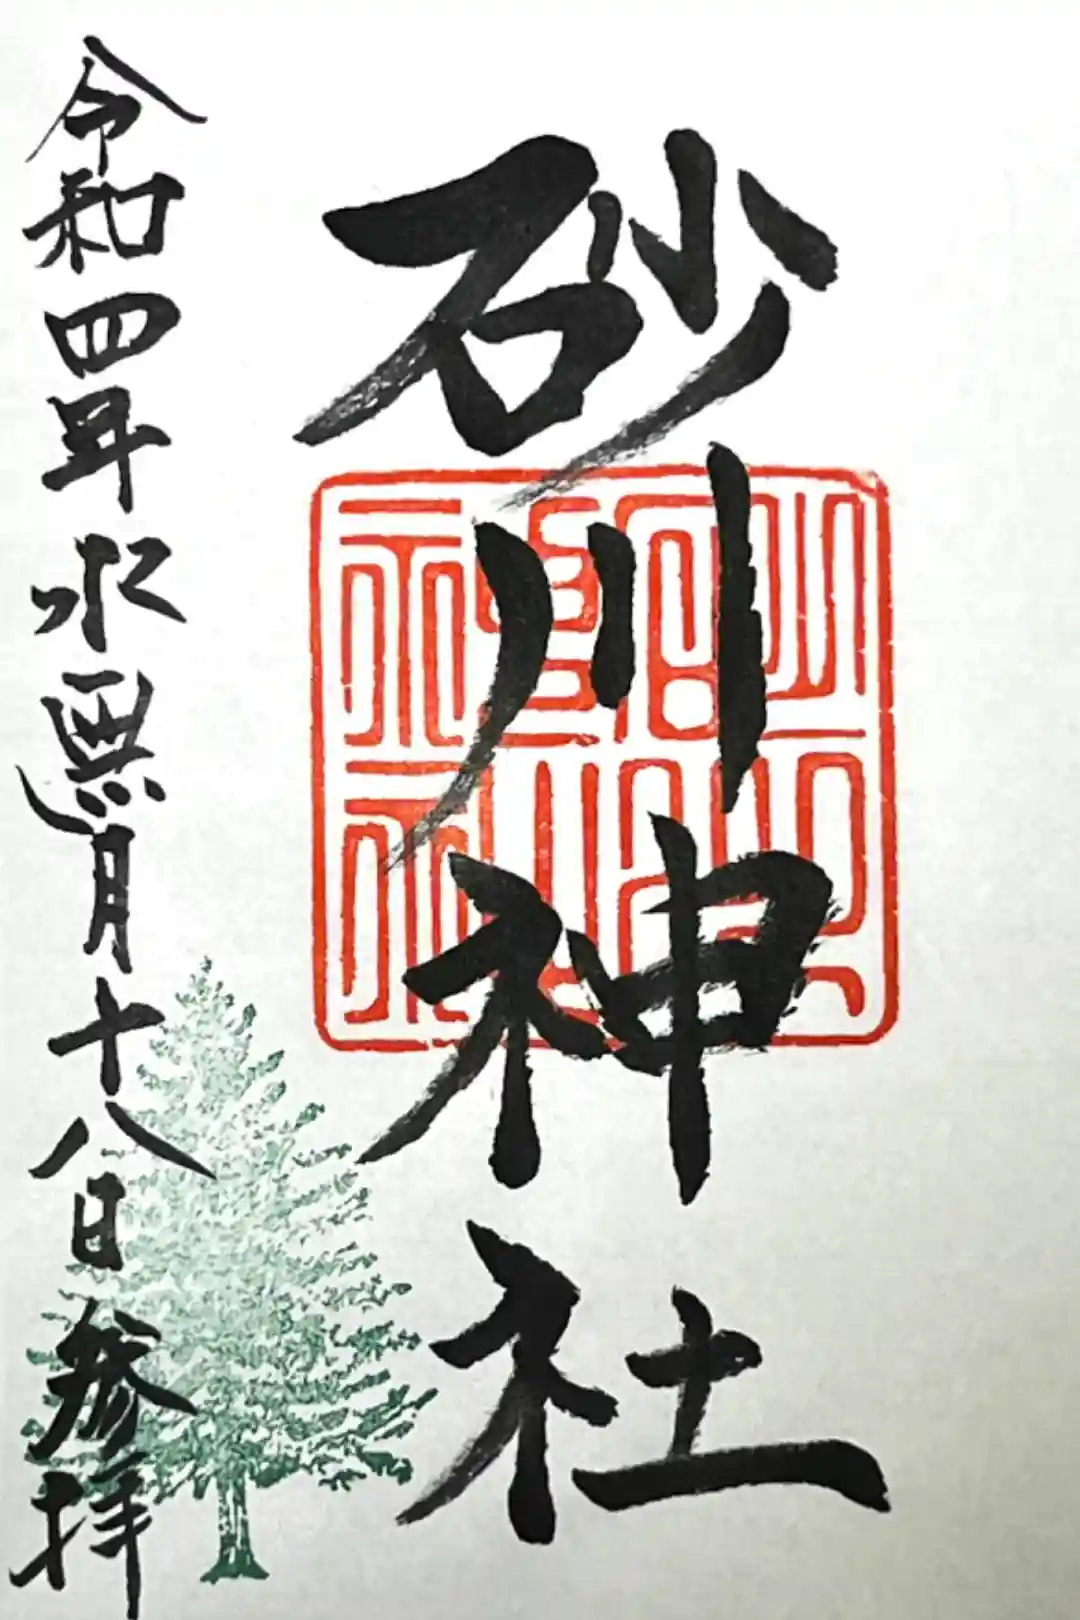 砂川神社
令和四年水無月十八日参拝